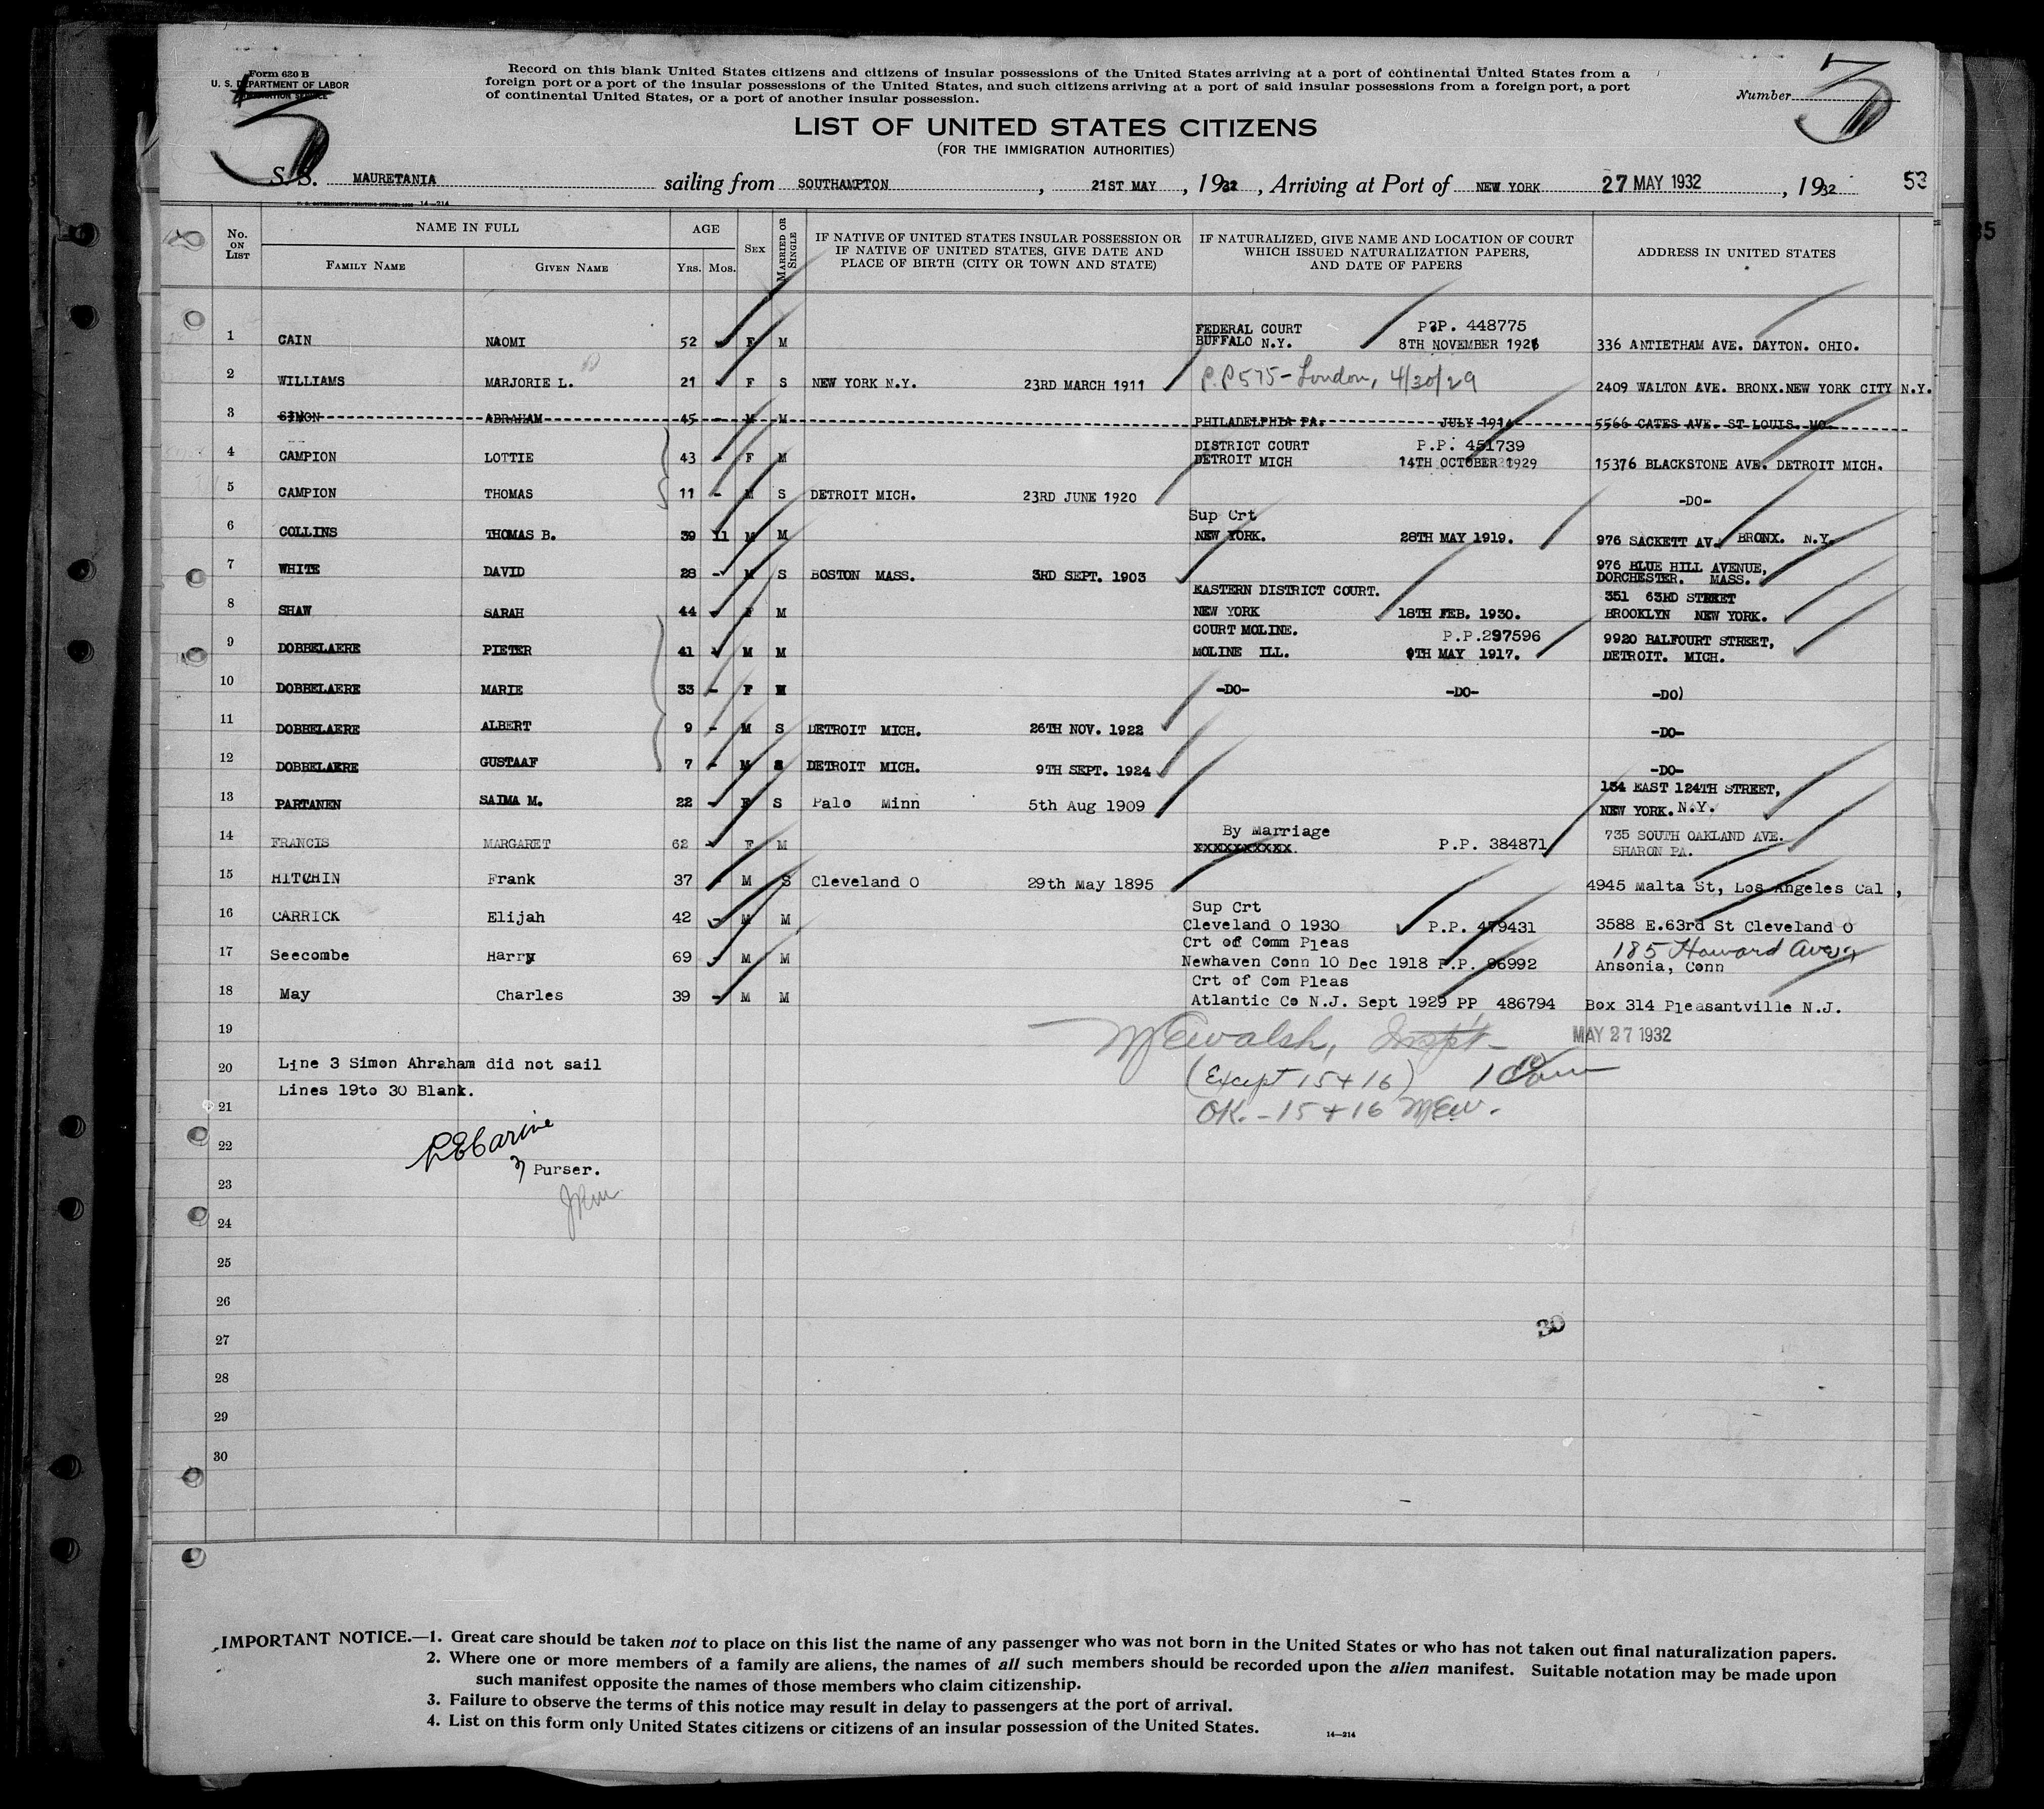 Form 630 B
U. S. DEPARTMENT OF LABOR
IMMIGRATION SERVICE
Record on this blank United States citizens and citizens of insular possessions of the United States arriving at a port of continental United States from a
foreign port or a port of the insular possessions of the United States, and such citizens arriving at a port of said insular possessions from a foreign port, a port
of continental United States, or a port of another insular possession.
Number 3
3
LIST OF UNITED STATES CITIZENS
(FOR THE IMMIGRATION AUTHORITIES)
S. S. MAURETANIA sailing from SOUTHAMPTON, 21ST MAY, 1932, Arriving at Port of NEW YORK 27 MAY 1932, 1932 53
14-214
No. ON LIST
NAME IN FULL
FAMILY NAME GIVEN NAME
AGE
YRS. MOS.
SEX
MARRIED OR SINGLE
IF NATIVE OF UNITED STATES INSULAR POSSESSION OR
IF NATIVE OF UNITED STATES, GIVE DATE AND
PLACE OF BIRTH (CITY OR TOWN AND STATE)
IF NATURALIZED, GIVE NAME AND LOCATION OF COURT
WHICH ISSUED NATURALIZATION PAPERS,
AND DATE OF PAPERS
ADDRESS IN UNITED STATES
FEDERAL COURT P?P. 448775
1 CAIN NAOMI 52 - F M BUFFALO N.Y. 8TH NOVEMBER 1926 336 ANTIETHAM AVE. DAYTON. OHIO.
2 WILLIAMS MARJORIE L. 21 - F S NEW YORK N.Y. 23RD MARCH 1911 P.P 575 - London, 4/30/29 2409 WALTON AVE. BRONX.NEW YORK CITY N.Y.
3 SIMON ABRAHAM 45 - M M PHILADELPHIA PA. JULY 1914 5566 CATES AVE. ST LOUIS. MO.
DISTRICT COURT P.P. 451739
4 CAMPION LOTTIE 43 - F M DETROIT MICH 14TH OCTOBER 1929 15376 BLACKSTONE AVE. DETROIT MICH.
5 CAMPION THOMAS 11 - M S DETROIT MICH. 23RD JUNE 1920 -DO-
Sup Crt
6 COLLINS THOMAS B. 39 11 M M NEW YORK. 28TH MAY 1919. 976 SACKETT AV. BRONX. N.Y.
976 BLUE HILL AVENUE,
7 WHITE DAVID 28 - M S BOSTON MASS. 3RD SEPT. 1903 DORCHESTER. MASS.
EASTERN DISTRICT COURT. 351 63RD STREET
8 SHAW SARAH 44 - F M NEW YORK 18TH FEB. 1930. BROOKLYN NEW YORK.
COURT MOLINE. P.P.297596 9920 BALFOURT STREET,
9 DOBBELAERE PIETER 41 - M M MOLINE ILL. 9TH MAY 1917. DETROIT. MICH.
10 DOBBELAERE MARIE 33 - F M -DO- -DO- -DO)
11 DOBBELAERE ALBERT 9 - M S DETROIT MICH. 26TH NOV. 1922 -DO-
12 DOBBELAERE GUSTAAF 7 - M S DETROIT MICH. 9TH SEPT. 1924 -DO-
154 EAST 124TH STREET,
13 PARTANEN SAIMA M. 22 - F S Palo Minn 5th Aug 1909 NEW YORK. N.Y.
By Marriage 735 SOUTH OAKLAND AVE.
14 FRANCIS MARGARET 62 - F M xxxxxxxxxx. P.P. 384871 SHARON PA.
15 HITCHIN Frank 37 - M S Cleveland O 29th May 1895 4945 Malta St, Los Angeles Cal ,
Sup Crt
16 CARRICK Elijah 42 - M M Cleveland O 1930 P.P. 479431 3588 E.63rd St Cleveland O
Crt of Comm Pleas 185 Howard Ave.
17 Seecombe Harry 69 - M M Newhaven Conn 10 Dec 1918 P.P. 96992 Ansonia, Conn
Crt of Com Pleas
18 May Charles 39 - M M Atlantic Co N.J. Sept 1929 PP 486794 Box 314 Pleasantville N.J.
19 MEWalsh, Insp't MAY 27 1932
20 Line 3 Simon Ahraham did not sail (Except 15 + 16)
Lines 19to 30 Blank.
21 OK. - 15 + 16 MEW.
22
Purser.
23
24
25
26
27 30
28
29
30
IMPORTANT NOTICE.—1. Great care should be taken not to place on this list the name of any passenger who was not born in the United States or who has not taken out final naturalization papers.
2. Where one or more members of a family are aliens, the names of all such members should be recorded upon the alien manifest. Suitable notation may be made upon
such manifest opposite the names of those members who claim citizenship.
3. Failure to observe the terms of this notice may result in delay to passengers at the port of arrival.
4. List on this form only United States citizens or citizens of an insular possession of the United States.
14-214